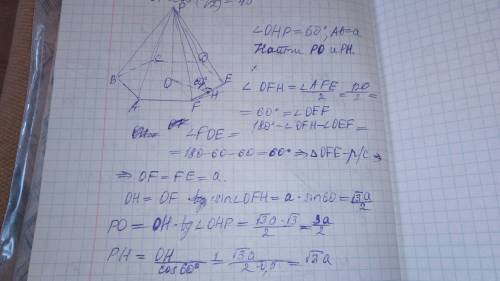 P
∠OHP = 60°, AB = a
Найти PO и PH.
C D
B O 60° E
H
A F
∠OFH = ∠AFE/2 = 120/2 =
= 60° = ∠OEF
∠FOE = 180° - ∠OFH - ∠OEF =
= 180 - 60 - 60 = 60° ⇒ △OFE - р/с ⇒
⇒ OF = FE = a.
OH = OF · sin∠OFH = a · sin60 = √3a/2
PO = OH · tg∠OHP = √3a · √3/2 = 3a/2
PH = OH/cos60° = √3a/2·0,5 = √3a